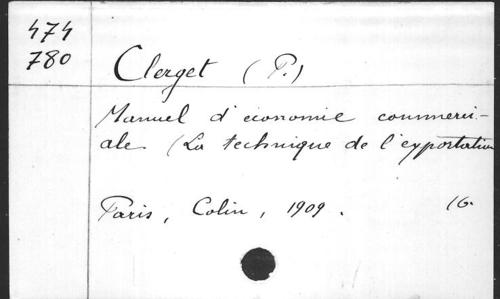 474
780
Clerget (P.)
Manuel d'économie commerci-
ale (La technique de l'exportation
Paris, Colin, 1909. 16.